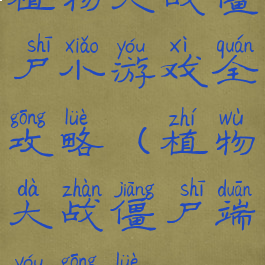 植物大战僵
shī xiǎo yóu xì quán
尸小游戏全
gōng lüè zhí wù
攻略（植物
dà zhàn jiāng shī duān
大战僵尸端
yóu gōng lüè